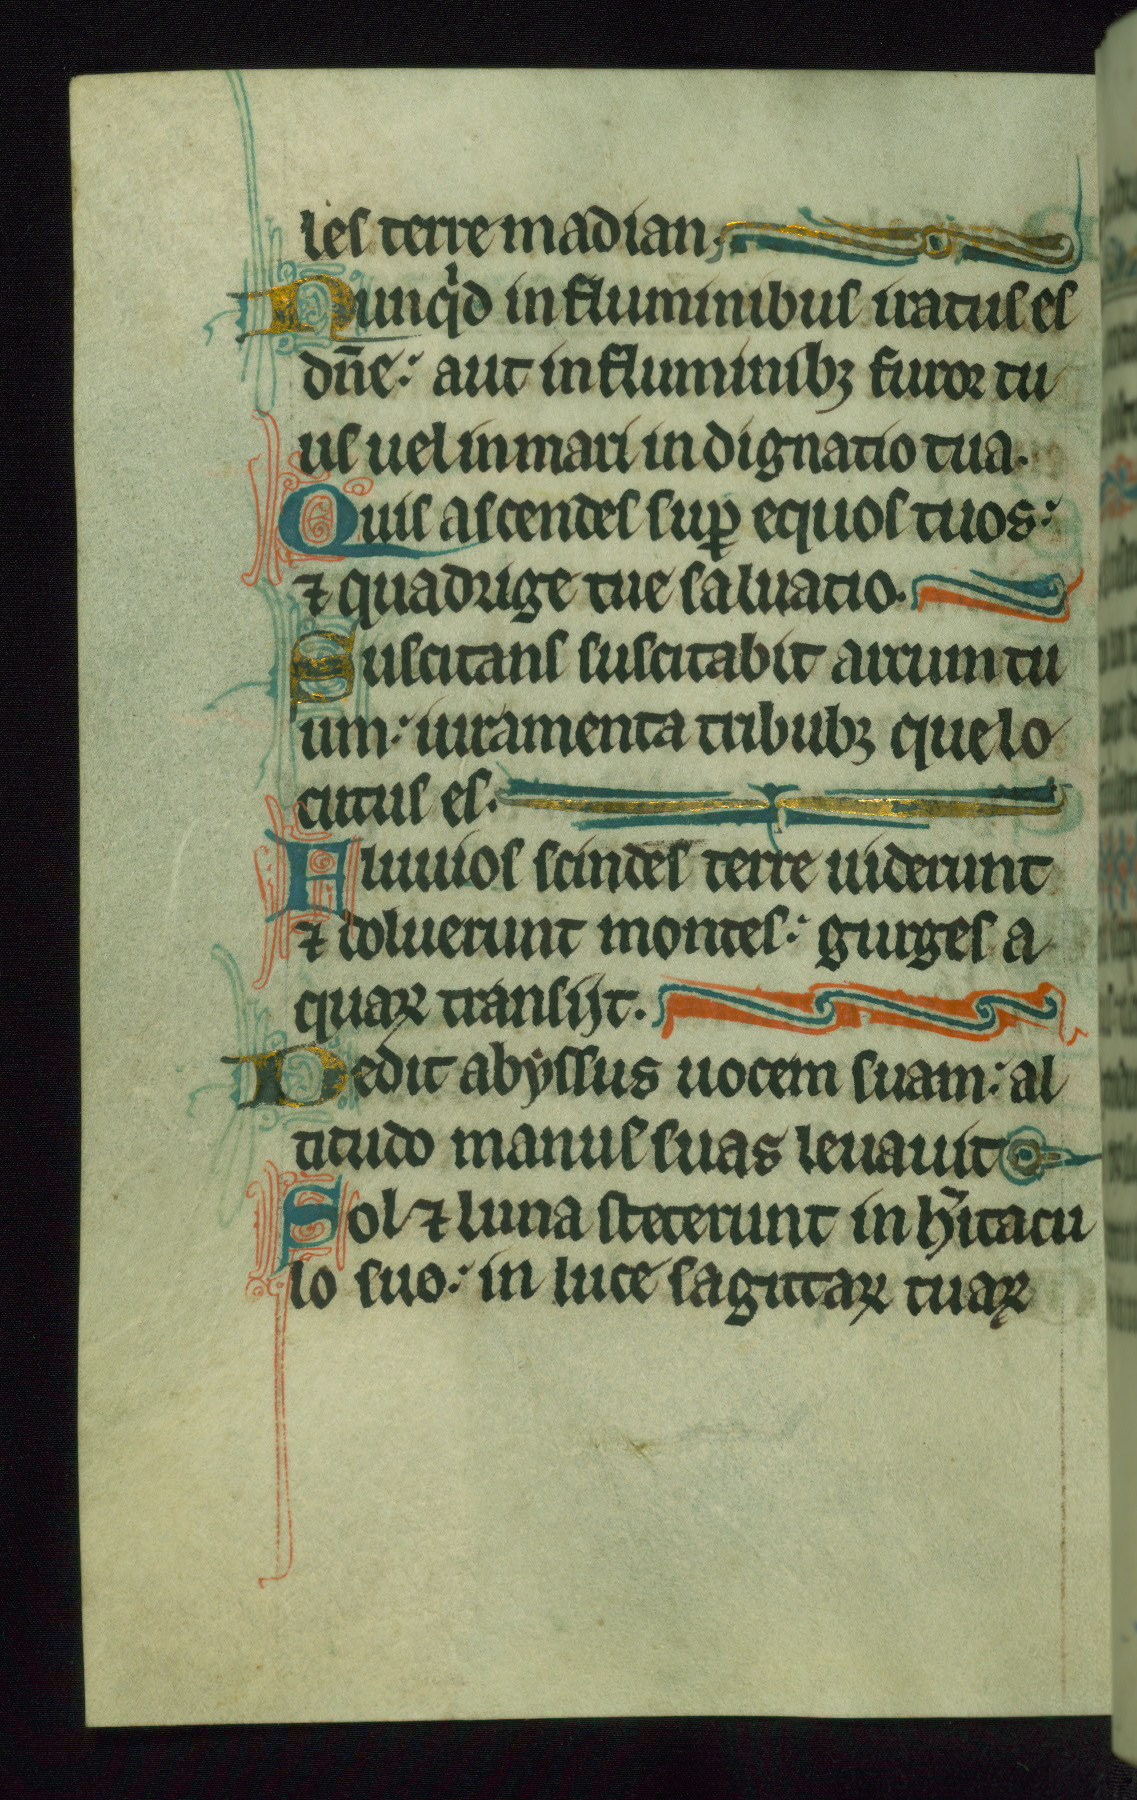 les terre madian.
Nunqͥd in fluminibus iratus es
dn̄e: aut in fluminibꝫ furor tu
us uel in mari indignatio tua.
Quis ascendes suꝑ equos tuos:
⁊ quadrige tue saluatio.
Suscitans suscitabit arcum tu
um: iuramenta tribubꝫ que lo
cutus es.
Fluuios scindes terre uiderunt
⁊ doluerunt montes: gurges a
quaꝝ transijt.
Dedit abyssus uocem suam: al
titudo manus suas leuauit
Sol ⁊ luna steterunt in hͣitacu
lo suo: in luce sagittaꝝ tuaꝝ